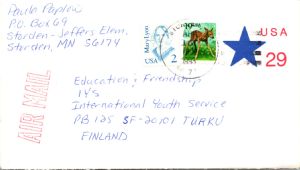 Paula Paplow
P.O. Box 69
Storden-Jeffers Elem.
Storden, MN 56174
Mary Lyon
2
USA
USA
29
AIR MAIL
Education & Friendship
IYS
International Youth Service
PB 125 SF-20101 TURKU
FINLAND